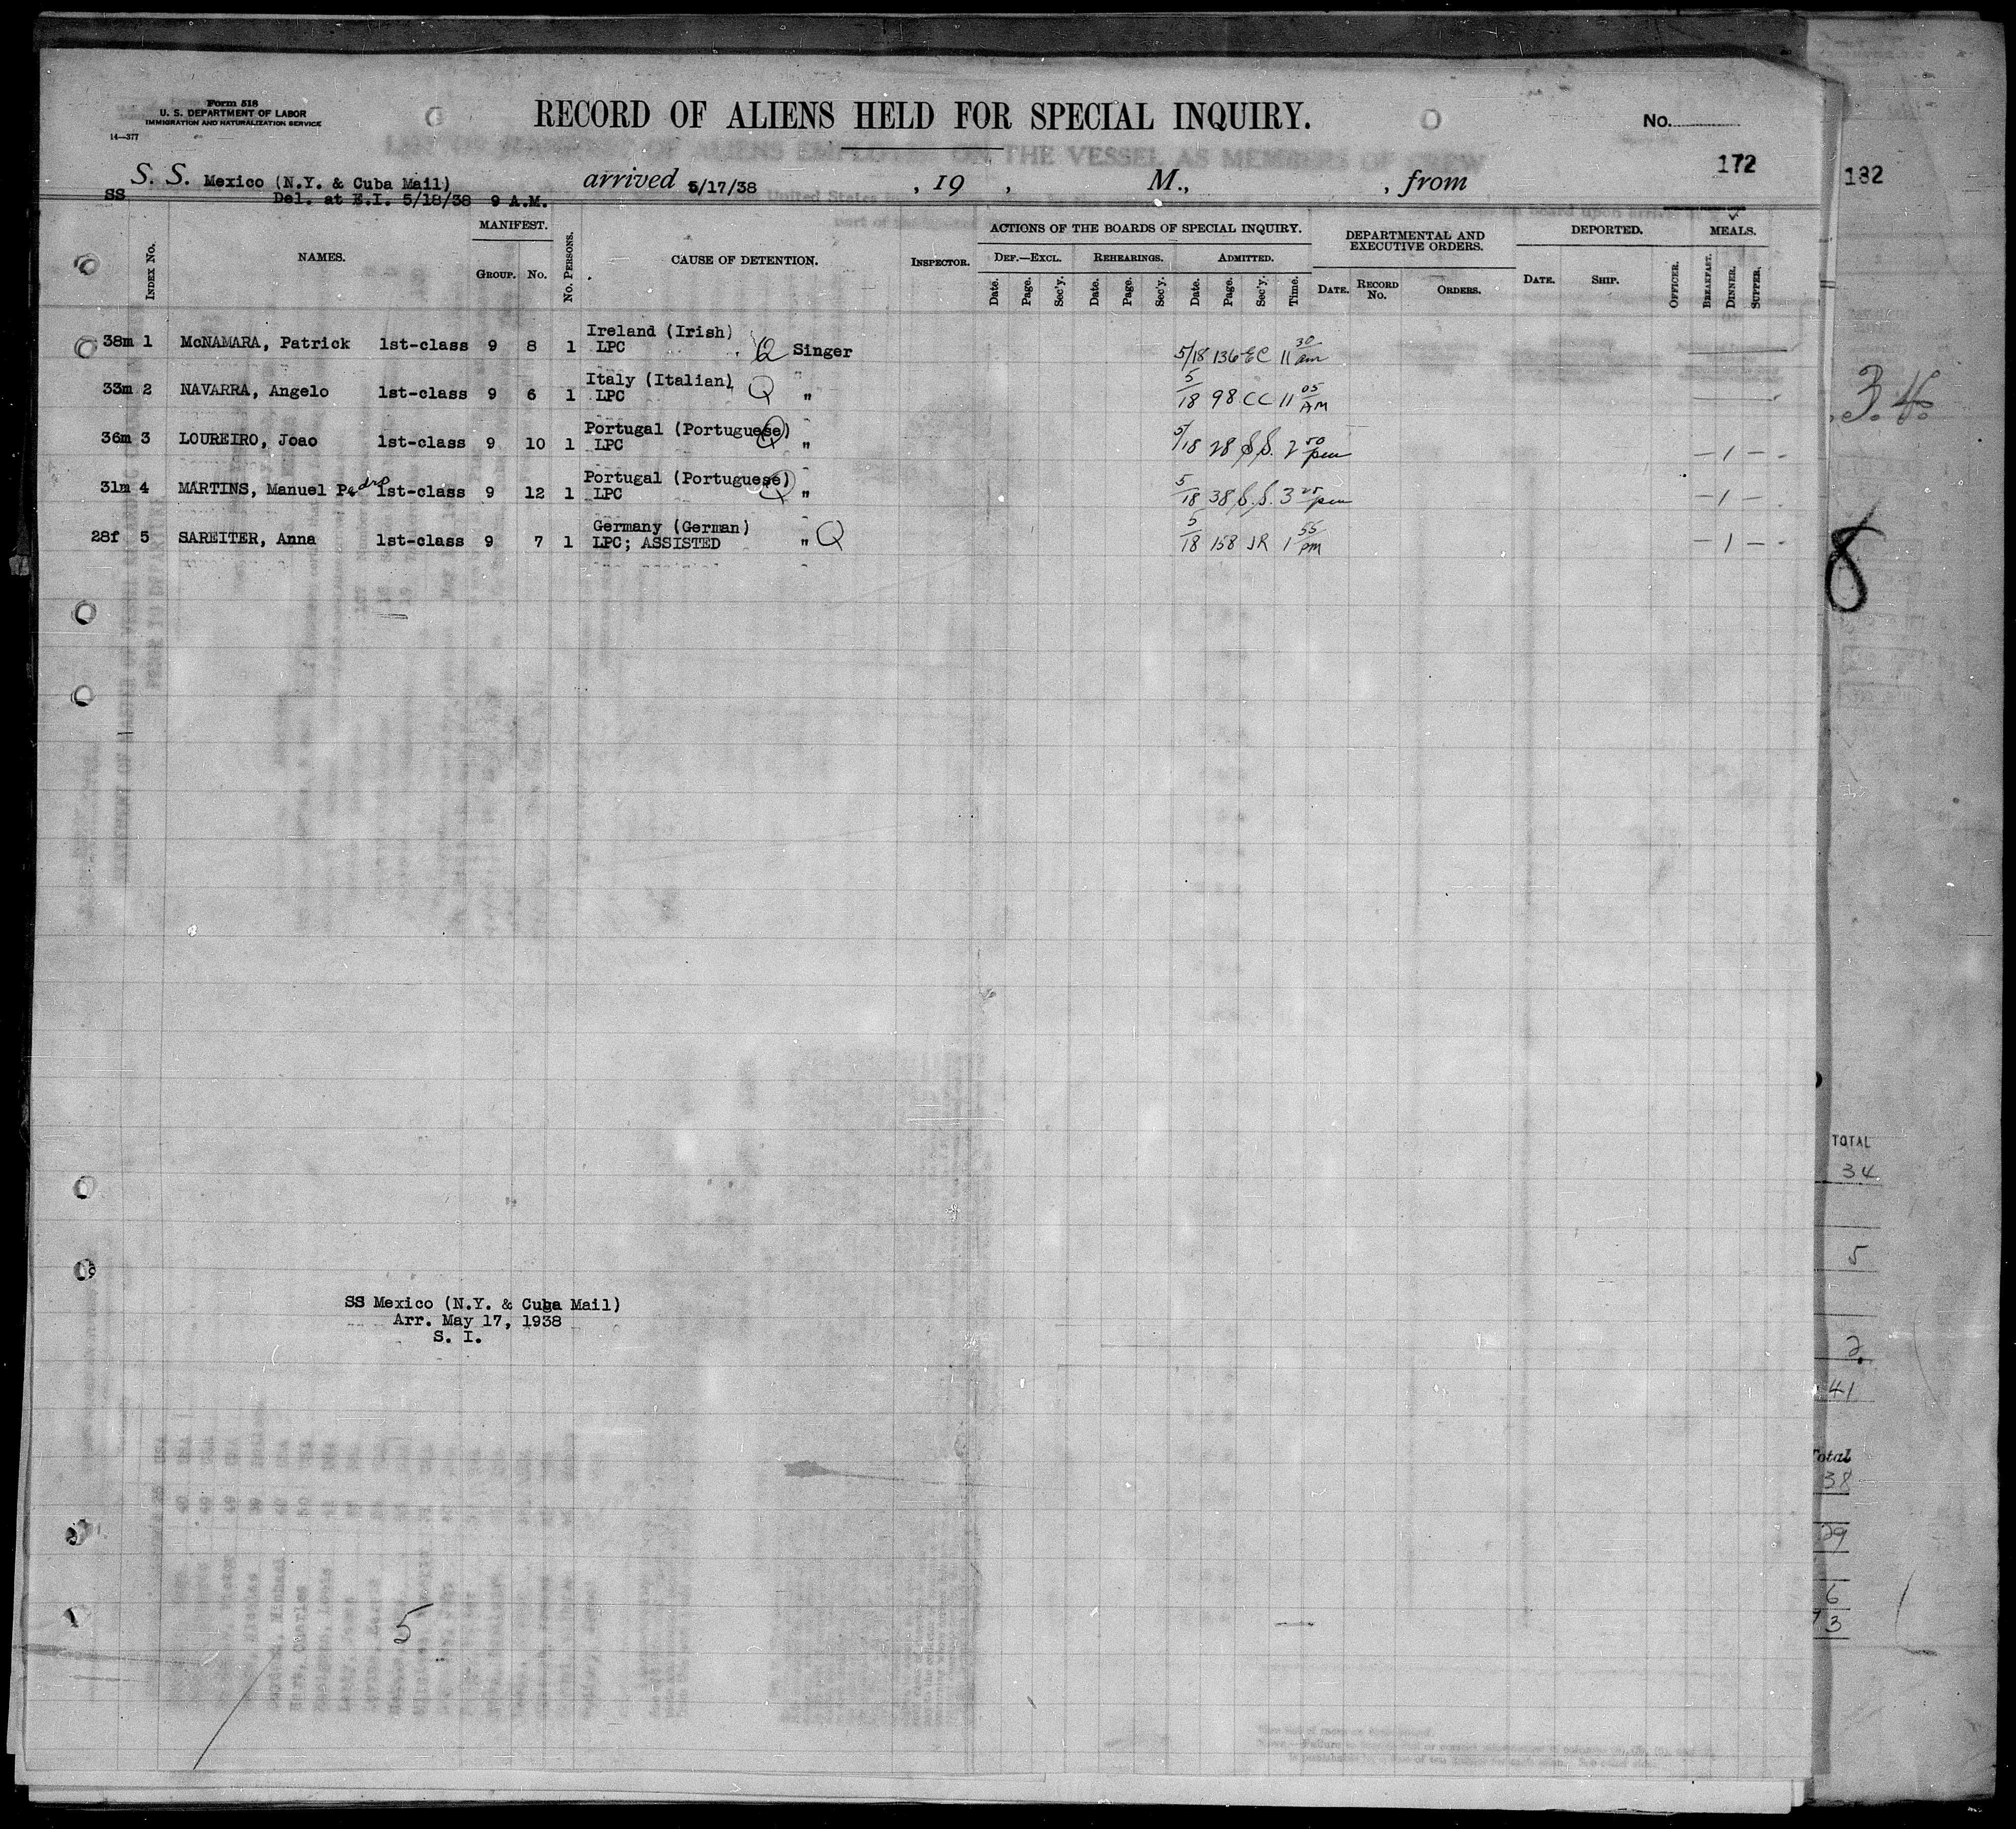 Form 518
U. S. DEPARTMENT OF LABOR
IMMIGRATION AND NATURALIZATION SERVICE
14—377
RECORD OF ALIENS HELD FOR SPECIAL INQUIRY.
No.
172
182
S. S. Mexico (N.Y. & Cuba Mail) arrived 5/17/38 , 19 , M., , from
SS Del. at E.I. 5/18/38 9 A.M.
INDEX NO. NAMES. MANIFEST. GROUP. NO. NO. PERSONS. CAUSE OF DETENTION. INSPECTOR. ACTIONS OF THE BOARDS OF SPECIAL INQUIRY. DEPARTMENTAL AND EXECUTIVE ORDERS. DEPORTED. MEALS.
DEF.—EXCL. REHEARINGS. ADMITTED.
Date. Page. Sec'y. Date. Page. Sec'y. Date. Page. Sec'y. Time. DATE. RECORD NO. ORDERS. DATE. SHIP. OFFICER. BREAKFAST. DINNER. SUPPER.
Ireland (Irish)
38m 1 McNAMARA, Patrick 1st-class 9 8 1 LPC Q Singer 5/18 136 EC 11 30 am
Italy (Italian)
33m 2 NAVARRA, Angelo 1st-class 9 6 1 LPC Q " 5/18 98 CC 11 05 AM
Portugal (Portuguese)
36m 3 LOUREIRO, Joao 1st-class 9 10 1 LPC Q " 5/18 28 S.S. 2 50 pm — 1 — -
Portugal (Portuguese)
31m 4 MARTINS, Manuel Pedro 1st-class 9 12 1 LPC Q " 5/18 38 S.S. 3 25 pm — 1 —
Germany (German)
28f 5 SAREITER, Anna 1st-class 9 7 1 LPC; ASSISTED " Q 5/18 158 JR 1 55 PM — 1 — -
8
TOTAL
34
5
2
41
SS Mexico (N.Y. & Cuba Mail)
Arr. May 17, 1938
S. I.
Total
38
29
6
73
5